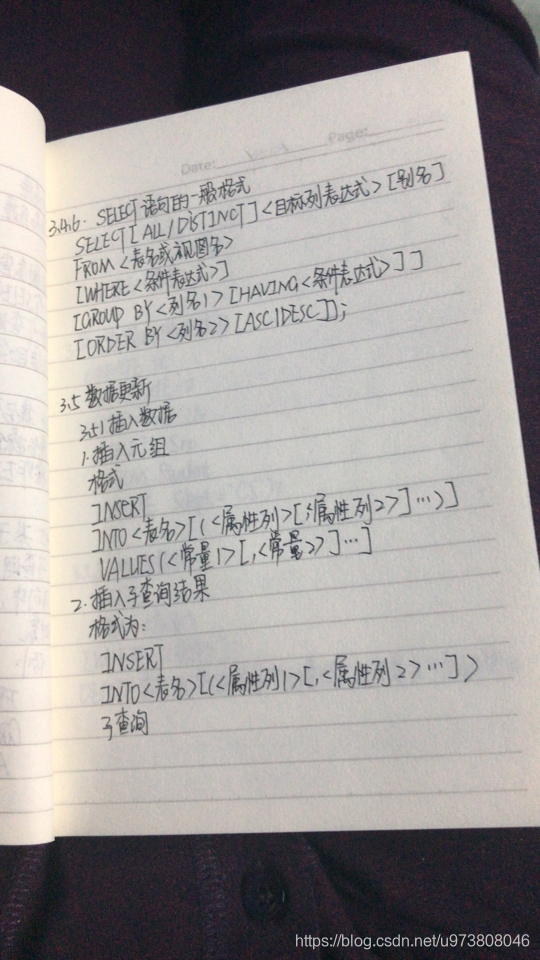 Date:
Page:
3.4.6. SELECT语句的一般格式
SELECT[ALL/DISTINCT]<目标列表达式>[别名]
FROM<表名或视图名>
[WHERE<条件表达式>]
[GROUP BY<列名1>[HAVING<条件表达式>]]
[ORDER BY<列名2>[ASC|DESC]];
3.5 数据更新
3.5.1 插入数据
1.插入元组
格式
INSERT
INTO<表名>[(<属性列>[,<属性列2>]…)]
VALUES(<常量1>[,<常量2>]…]
2.插入子查询结果
格式为:
INSERT
INTO<表名>[(<属性列1>[,<属性列2>…])
子查询
https://blog.csdn.net/u973808046